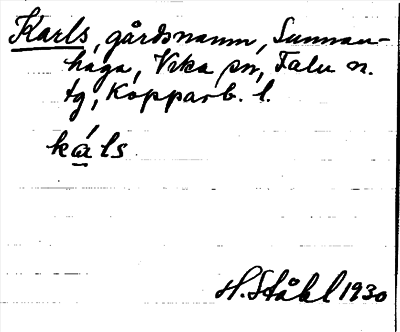 Karls, gårdsnamn, Sunnan-
häga, Vika sn, Falu n.
tg, Kopparb. l.
káls
H. Ståhl 1930